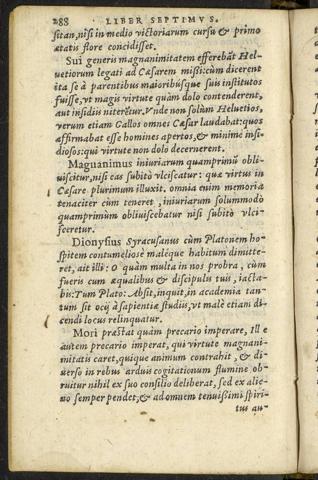 288 LIBER SEPTIMVS.
sitan, nisi in medio victoriarum cursu & primo
ætatis flore concidisset.
Sui generis magnanimitatem efferebāt Hel-
uetiorum legati ad Cæsarem missi: cùm dicerent
ita se à parentibus maioribúsque suis institutos
fuisse, vt magis virtute quàm dolo contenderent,
aut insidiis niterētur. Vnde non solùm Heluetios,
verum etiam Gallos omnes Cæsar laudabat: quos
affirmabat esse homines apertos, & minimè insi-
diosos: qui virtute non dolo decernerent.
Magnanimus iniuriarum quamprimū obli-
uiscitur, nisi eas subitò vlciscatur: quæ virtus in
Cæsare plurimum illuxit. omnia enim memoria
tenaciter cùm teneret, iniuriarum solummodò
quamprimùm obliuiscebatur nisi subitò vlci-
sceretur.
Dionysius Syracusanus cùm Platonem ho-
spitem contumeliosè malèque habitum dimitte-
ret, ait illi: O quàm multa in nos probra, cùm
fueris cum æqualibus & discipulis tuis, iacta-
bis: Tum Plato: Absit, inquit, in academia tan-
tum sit ocij à sapientiæ studiis, vt malè etiam di-
cendi locus relinquatur.
Mori præstat quàm precario imperare, Ill e
autem precario imperat, qui virtute magnani-
mitatis caret, quique animum contrahit, & di-
uerso in rebus arduis cogitationum flumine ob-
ruitur nihil ex suo consilio deliberat, sed ex alie-
no semper pendet, & ad omnem tenuissimi spiri-
tus au-